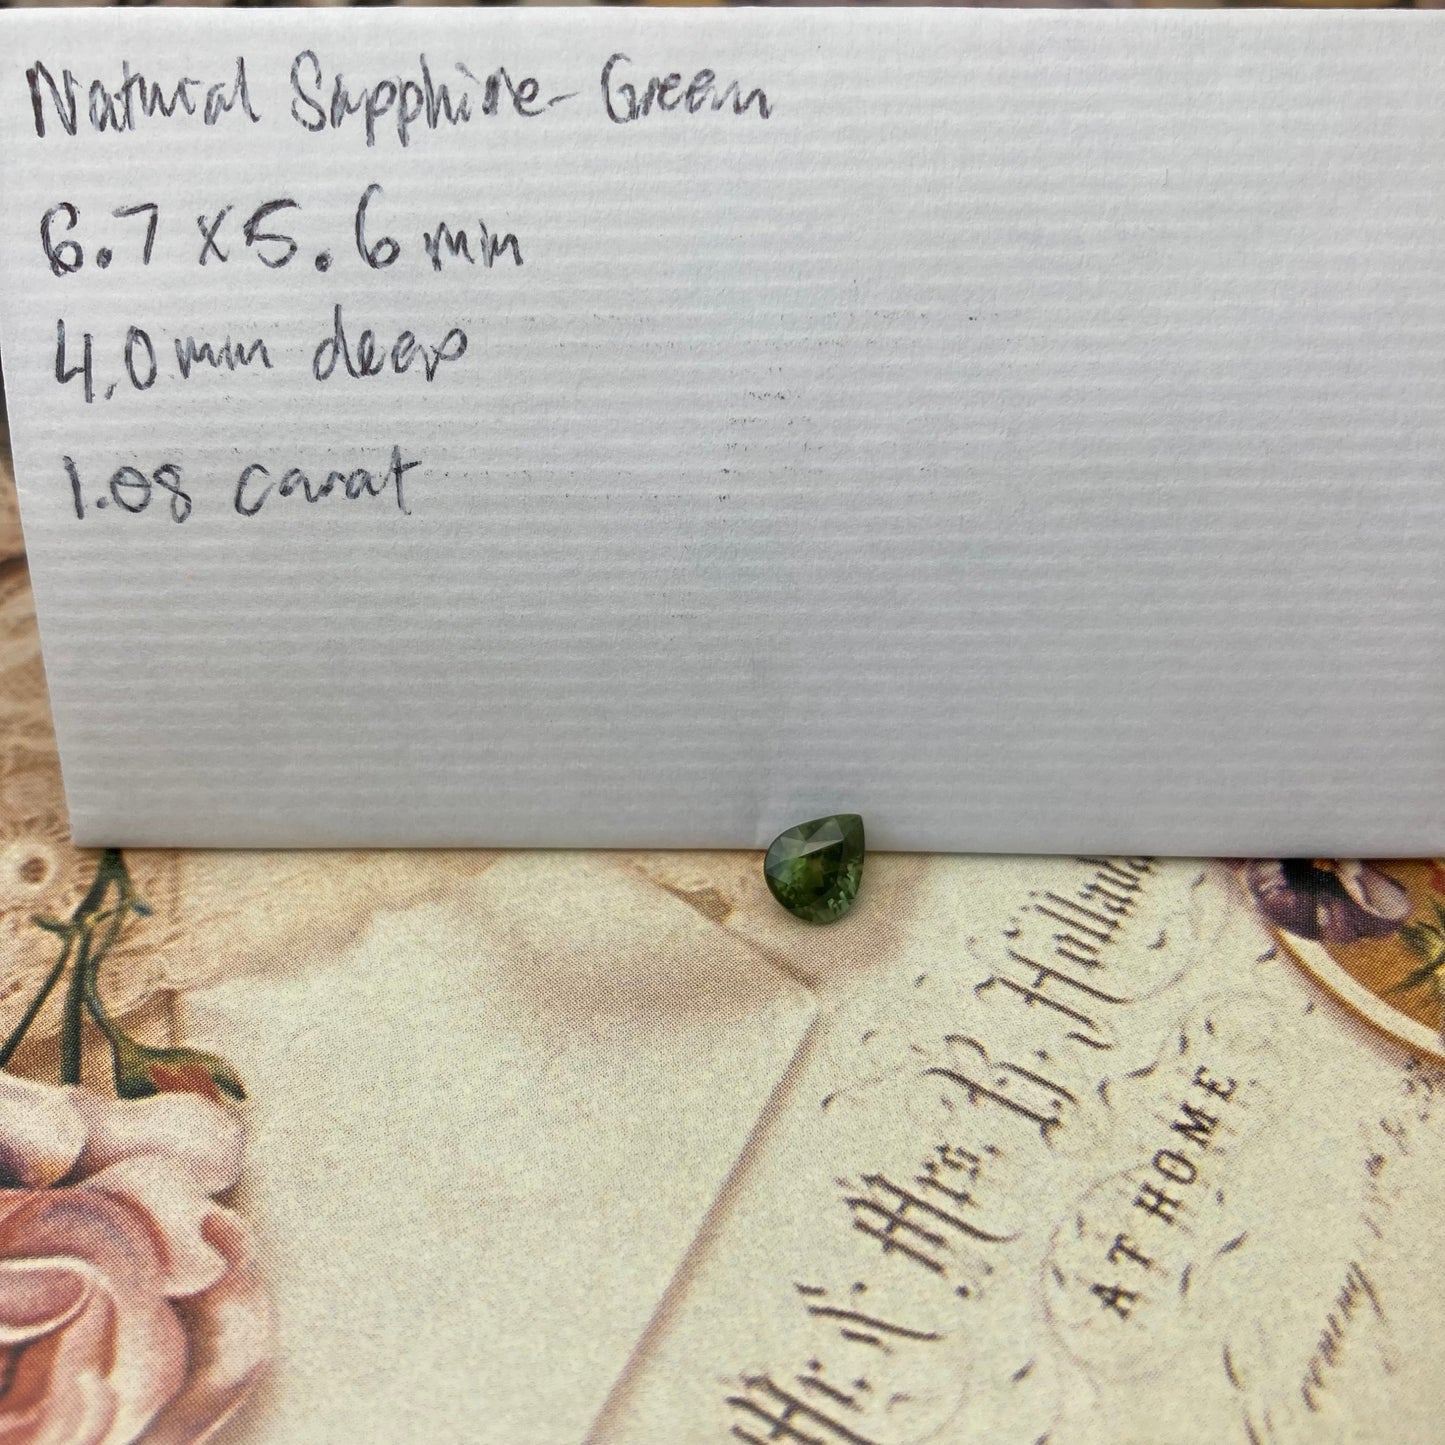 Natural Sapphire- Green
6.7 x 5.6 mm
4.0 mm deep
1.08 carat
Mr. & Mrs. B. Holland
AT HOME